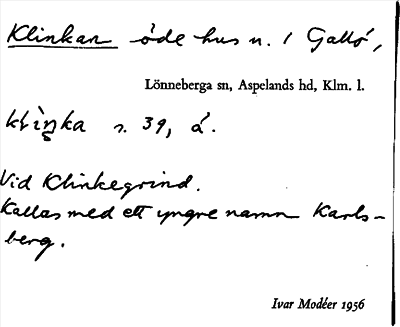 Klinkan öde hus n. 1 Gallö,
Lönneberga sn, Aspelands hd, Klm. l.
klìŋka s. 39, å.
Vid Klinkegrind.
Kallas med ett yngre namn Karls-
berg.
Ivar Modéer 1956